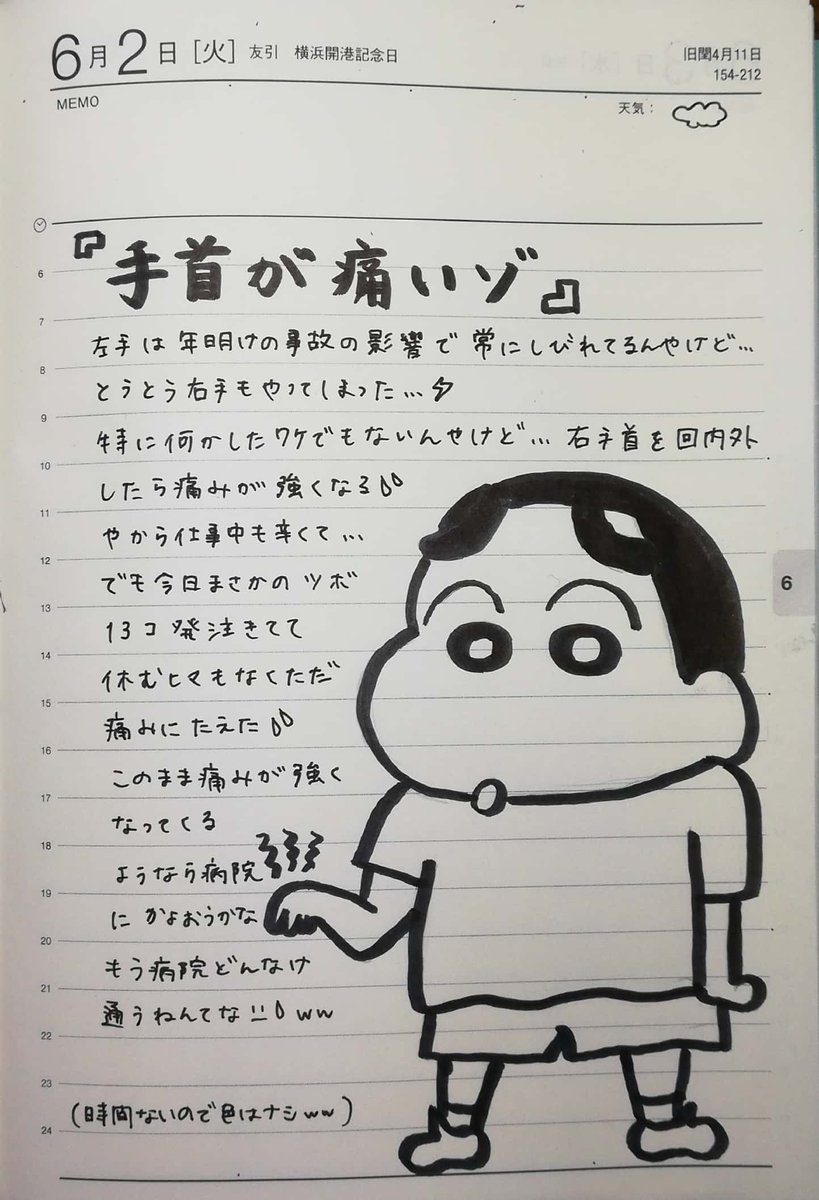 6月2日[火] 友引 横浜開港記念日
旧閏4月11日
154-212
MEMO
天気：
『手首が痛いゾ』
左手は年明けの事故の影響で常にしびれてるんやけど…
とうとう右手もやってしまった…
特に何かしたワケでもないんやけど…右手首を回内外
したら痛みが強くなる
やから仕事中も辛くて…
でも今日まさかのツボ
13コ発注きてて
休むヒマもなくただ
痛みにたえた
このまま痛みが強く
なってくる
ようなら病院
にかよおうかな
もう病院どんなけ
通うねんてな ww
(時間ないので色はナシww)
6
7
8
9
10
11
12
13
14
15
16
17
18
19
20
21
22
23
24
6